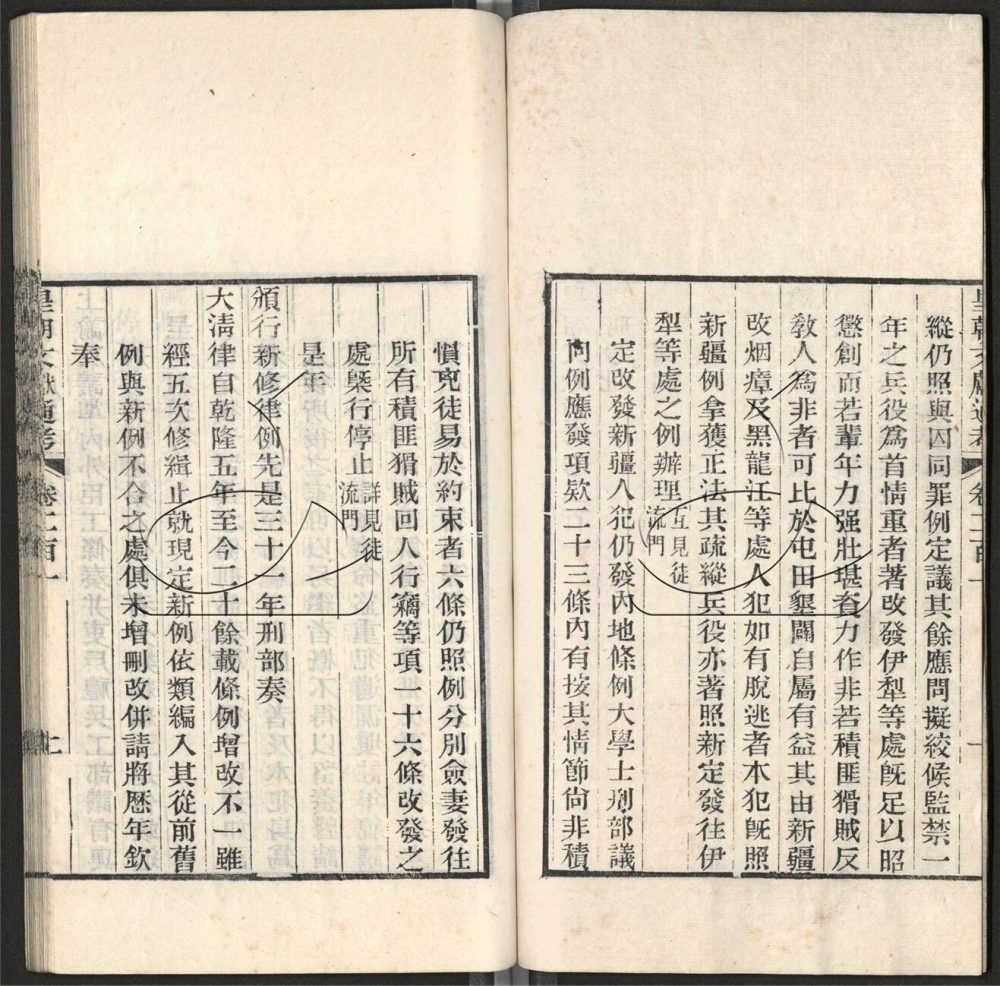 縱仍照與囚同罪例定議其餘應問擬絞候監禁一
年之兵役爲首情重者著改發伊犁等處旣足以昭
懲創而若輩年力强壯堪資力作非若積匪猾賊反
敎人爲非者可比於屯田墾闢自屬有益其由新疆
改烟瘴及黑龍江等處人犯如有脫逃者本犯旣照
新疆例拿獲正法其疏縱兵役亦著照新定發往伊
犁等處之例辦理互見徒流門
定改發新疆人犯仍發內地條例大學士刑部議
向例應發項欵二十三條內有按其情節尙非積
慣兇徒易於約束者六條仍照例分別僉妻發往
所有積匪猾賊回人行竊等項一十六條改發之
處槩行停止詳見徒流門
是年
頒行新修律例先是三十一年刑部奏
大淸律自乾隆五年至今二十餘載條例增改不一雖
經五次修緝止就現定新例依類編入其從前舊
例與新例不合之處俱未增刪改併請將歷年欽
奉
皇朝文獻通考 卷二百一 七